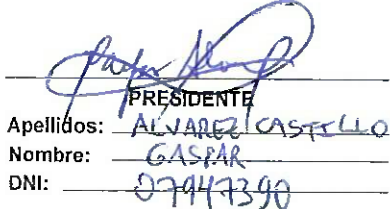 PRESIDENTE
Apellidos: ALVAREZ CASTILLO
Nombre: GASPAR
DNI: 07947390